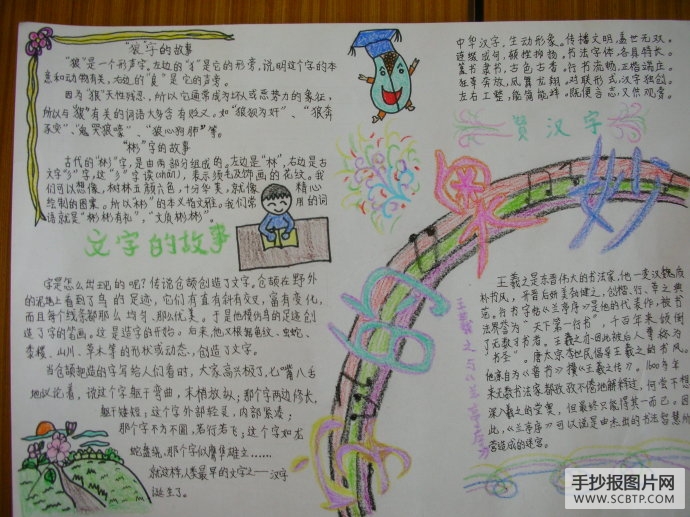 "狼"字的故事
"狼"是一个形声字,左边的"犭"是它的形旁,说明这个字的本
意和动物有关,右边的"良"是它的声旁。
因为"狼"天性残忍,所以它通常成为坏人或恶势力的象征,
所以与"狼"有关的词语大多含有贬义,如"狼狈为奸"、"狼奔
豕突"、"鬼哭狼嚎"、"狼心狗肺"等。
"彬"字的故事
古代的"彬"字,是由两部分组成的。左边是"林",右边是古
文字"彡",这"彡"字读(shān),表示须毛及饰画的花纹。我
们可以想像,树林五颜六色,十分华美,就像 精心
绘制的图案。所以"彬"的本义指文雅。我们常 用的词
语就是"彬彬有礼"、"文质彬彬"。
文字的故事
字是怎么出现的呢?传说仓颉创造了文字。仓颉在野外
的泥地上看到了鸟的足迹,它们有直有斜有交,富有变化,
而且每个线条都那么均匀、那么优美。于是他模仿鸟的足迹创
造了字的笔画。这是造字的开始。后来,他又根据龟纹、虫蛇、
禾穗、山川、草木等的形状或动态,创造了文字。
当仓颉把造的字写给人们看时,大家高兴极了,七嘴八舌
地议论着,说这个字躯干弯曲,末梢放纵;那个字两边修长,
躯干矮短;这个字外部轻灵,内部紧凑;
那个字不方不圆,若行若飞;这个字如龙
蛇盘绕,那个字似鹰隼雄立……
就这样,人类最早的文字之一——汉字
诞生了。
中华汉字,生动形象。传播文明,盖世无双。
连缀成句,顿挫抑扬。书法字体,各具特长。
篆书隶书,古色古香。行书流畅,正楷端庄。
狂草奔放,凤翼龙翔。对联形式,汉字独创。
左右工整,能简能详。既便言志,又供观赏。
赞汉字
的
奥妙
王羲之与《兰亭序》
王羲之是东晋伟大的书法家,他一变汉魏质
朴书风,开晋后妍美劲健之,创楷、行、草之典
范。行书字帖《兰亭序》是他的代表作,被书
法界誉为"天下第一行书",千百年来倾倒
了无数习书者。王羲之亦因此被后人尊称为
"书圣"。唐太宗李世民倡导王羲之的书风。
他亲自为《晋书》撰《王羲之传》。1600多年
来无数书法家都孜孜不倦地解释过,何尝不想
深入羲之的堂奥,但最终只能得其一而已。因
此,《兰亭序》可以说是由杰出的书法智慧所
营造成的迷宫。
手抄报图片网
WWW.SCBTP.COM